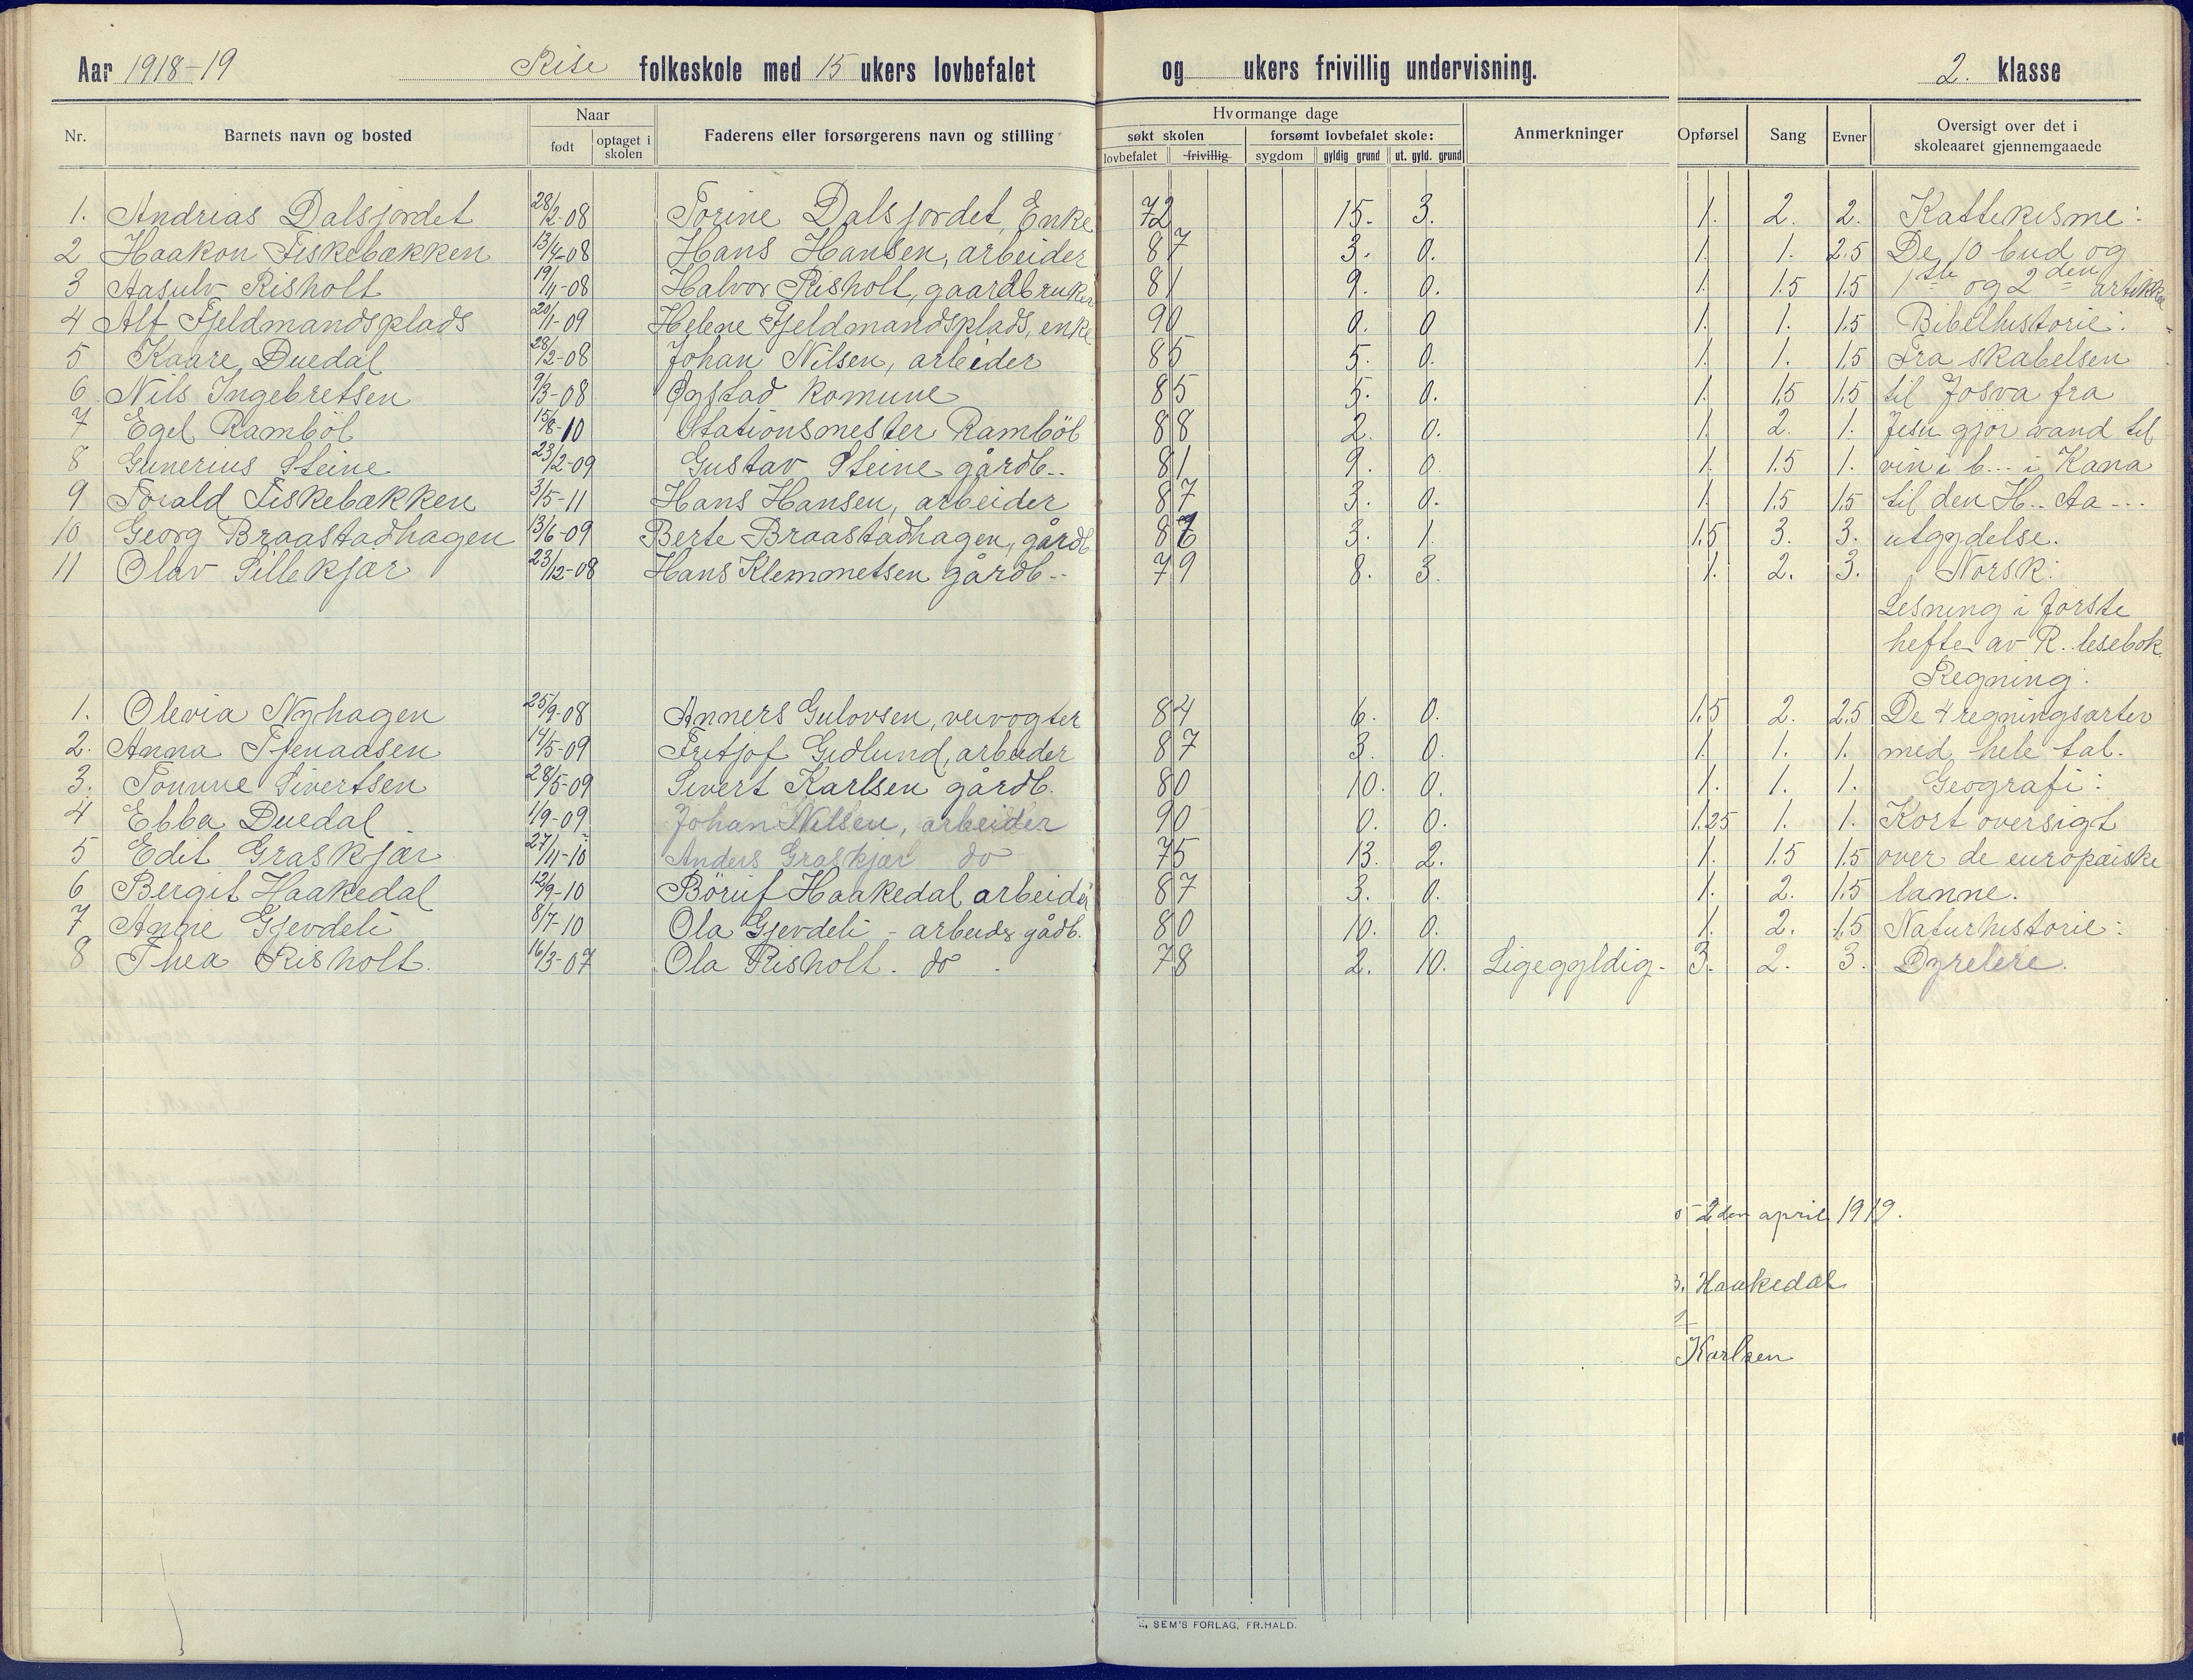 Aar 1918-19 Rise folkeskole med 15 ukers lovbefalet og ukers frivillig undervisning. 2. klasse
Nr. Barnets navn og bosted Naar født optaget i skolen Faderens eller forsørgerens navn og stilling Hvormange dage søkt skolen lovbefalet frivillig forsømt lovbefalet skole: sygdom gyldig grund ut. gyld. grund Anmerkninger Opførsel Sang Evner Oversigt over det i skoleaaret gjennemgaaede
1. Andrias Dalsjordet 28/2-08 Torine Dalsjordet, Enke 72 15. 3. 1. 2. 2. Kattekisme:
2 Haakon Fiskebækken 13/4-08 Hans Hansen, arbeider 87 3. 0. 1. 1. 2.5 De 10 bud og
3 Aasulv Risholt 19/11-08 Halvor Risholt, gaardbruker 81 9. 0. 1. 1.5 1.5 1ste og 2den artikkel
4 Alf Fjeldmandsplads 20/1-09 Helene Fjeldmandsplads, enke 90 0. 0 1. 1. 1.5 Bibelhistorie:
5 Kaare Duedal 28/2-08 Johan Nilsen, arbeider 85 5. 0. 1. 1. 1.5 Fra skabelsen
6 Nils Ingebretsen 9/3-08 Øystad komune 85 5. 0. 1. 1.5 1.5 til Josva fra
7 Egel Ramböl 15/8-10 Stationsmester Ramböl 88 2. 0. 1. 2. 1. Jesu gjör vand til
8 Gunerius Steine 23/2-09 Gustav Steine gårdb.. 81 9. 0. 1. 1.5 1. vin i b... i Kana
9 Torald Fiskebækken 3/5-11 Hans Hansen, arbeider 87 3. 0. 1. 1.5 1.5 til den H.. Aa...
10 Georg Braastadhagen 13/6-09 Berte Braastadhagen, gårdb 86 3. 1. 1.5 3. 3. utgydelse.
11 Olav Sillekjær 23/12-08 Hans Klemmetsen gårdb.. 79 8. 3. 1. 2. 3. Norsk:
Lesning i förste
hefte av R. lesebok.
Regning:
1. Olevia Nyhagen 25/9-08 Anners Gulovsen, veivogter 84 6. 0. 1.5 2. 2.5 De 4 regningsarter
2. Anna Tjenaasen 14/5-09 Fritjof Gidlund, arbeider 87 3. 0. 1. 1. 1. med hele tal.
3. Tomine Sivertsen 28/5-09 Sivert Karlsen gårdb. 80 10. 0. 1. 1. 1. Geografi:
4 Ebba Duedal 1/9-09 Johan Nilsen, arbeider 90 0. 0. 1.25 1. 1. Kort oversigt
5 Edit Graskjær 27/11-10 Anders Graskjær do 75 13. 2. 1. 1.5 1.5 over de europæiske
6 Bergit Haakedal 12/9-10 Böruf Haakedal arbeider 87 3. 0. 1. 2. 1.5 lanne.
7 Anne Gjevdeli 8/7-10 Ola Gjevdeli - arbeider gådb. 80 10. 0. 1. 2. 1.5 Naturhistorie:
8 Thea Risholt. 16/3-07 Ola Risholt. do 78 2. 10. Ligegyldig. 3. 2. 3. Dyrelere.
2den april 1919.
Haakedal
Karlsen
SEM'S FORLAG, FR.HALD.